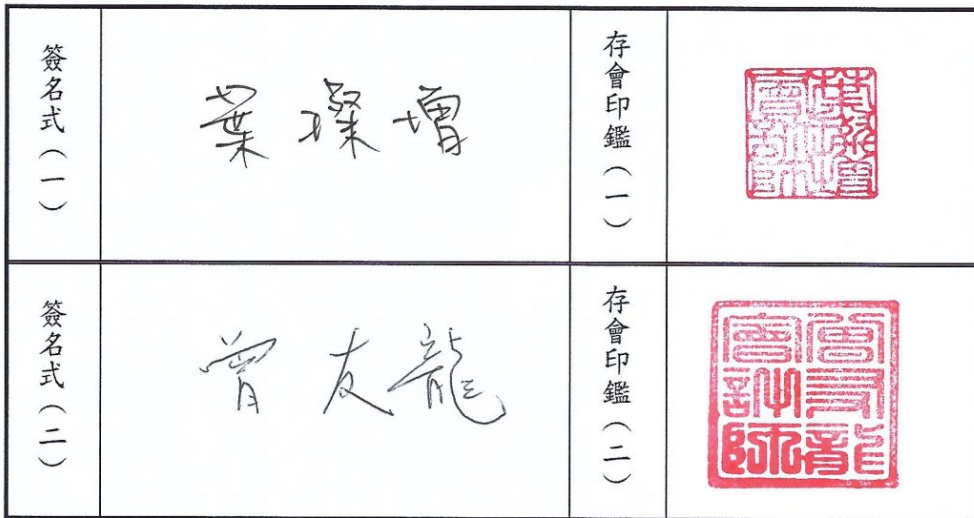 簽名式（一）
葉璨增
存會印鑑（一）
簽名式（二）
曾友龍
存會印鑑（二）
曾友龍
會計師